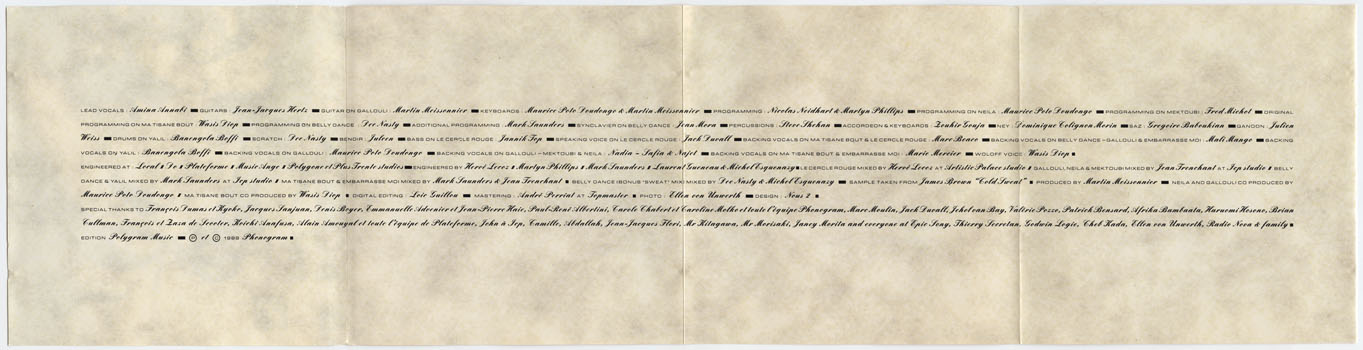 LEAD VOCALS : Amina Annabi ▬ GUITARS : Jean-Jacques Hertz ▬ GUITAR ON GALLOULI : Martin Meissonnier ▬ KEYBOARDS : Maurice Poto Doudongo & Martin Meissonnier ▬ PROGRAMMING : Nicolas Neidhart & Martyn Phillips ▬ PROGRAMMING ON NEILA : Maurice Poto Doudongo ▬ PROGRAMMING ON MEKTOUBI : Fred Michet ▬ ORIGINAL
PROGRAMMING ON MA TISANE BOUT : Wasis Diop ▬ PROGRAMMING ON BELLY DANCE : Dee Nasty ▬ ADDITIONAL PROGRAMMING : Mark Saunders ▬ SYNCLAVIER ON BELLY DANCE : Jean Mora ▬ PERCUSSIONS : Steve Shehan ▬ ACCORDEON & KEYBOARDS : Zouhir Gouja ▬ NEY : Dominique Colignon Morin ▬ SAZ : Gregoire Baboukina ▬ GANOON : Julien
Weiss ▬ DRUMS ON YALIL : Banengola Boffi ▬ SCRATCH : Dee Nasty ▬ BENDIR : Julien ▬ BASS ON LE CERCLE ROUGE : Jannik Top ▬ SPEAKING VOICE ON LE CERCLE ROUGE : Jack Duvall ▬ BACKING VOCALS ON MA TISANE BOUT & LE CERCLE ROUGE : Marc Brace ▬ BACKING VOCALS ON BELLY DANCE - GALLOULI & EMBARRASSE MOI : Mati Mango ▬ BACKING
VOCALS ON YALIL : Banengola Boffi ▬ BACKING VOCALS ON GALLOULI : Maurice Poto Doudongo ▬ BACKING VOCALS ON GALLOULI - MEKTOUBI & NEILA : Nadia - Safia & Najet ▬ BACKING VOCALS ON MA TISANE BOUT & EMBARRASSE MOI : Marie Mercier ▬ WOLOFF VOICE : Wasis Diop
ENGINEERED AT : Local & Do & Plateforme & Music Ange & Polygone et Plus Trente studios ▬ ENGINEERED BY Hervé Lovez & Martyn Phillips & Mark Saunders & Laurent Gueneau & Michel Esquenasy LE CERCLE ROUGE MIXED BY Hervé Lovez AT Artistic Palace studio & GALLOULI, NEILA & MEKTOUBI MIXED BY Jean Tranchant AT Jep studio & BELLY
DANCE & YALIL MIXED BY Mark Saunders AT Jep studio & MA TISANE BOUT & EMBARRASSE MOI MIXED BY Mark Saunders & Jean Tranchant BELLY DANCE (BONUS "SWEAT" MIX) MIXED BY Dee Nasty & Michel Esquenasy ▬ SAMPLE TAKEN FROM James Brown "Cold Sweat" PRODUCED BY Martin Meissonnier ▬ NEILA AND GALLOULI CO PRODUCED BY
Maurice Poto Doudongo MA TISANE BOUT CO PRODUCED BY Wasis Diop DIGITAL EDITING : Loïc Guillou ▬ MASTERING : André Perriat AT Topmaster PHOTO : Ellen von Unworth ▬ DESIGN : Nous 2
SPECIAL THANKS TO François Dumas et Kyoko, Jacques Sanjuan, Denis Boyer, Emmanuelle Adevoier et Jean-Pierre Haie, Paul-René Albertini, Carole Chabot et Caroline Molko et toute l'équipe Phonogram, Marc Moulin, Jack Duvall, Johel van Bay, Valérie Pozzo, Patrick Bensard, Afrika Bambaata, Haruomi Hosono, Brian
Cullman, François et Zaza de Scooter, Keichi Anafusa, Alain Amouyal et toute l'équipe de Plateforme, John à Jep, Camille, Abdallah, Jean-Jacques Flori, Mr Kitagawa, Mr Morisaki, Janey Morita and everyone at Epic Sony, Thierry Secretan, Godwin Logie, Cheb Kada, Ellen von Unworth, Radio Nova & family
EDITION Polygram Music ▬ ℗ et © 1989 Phonogram